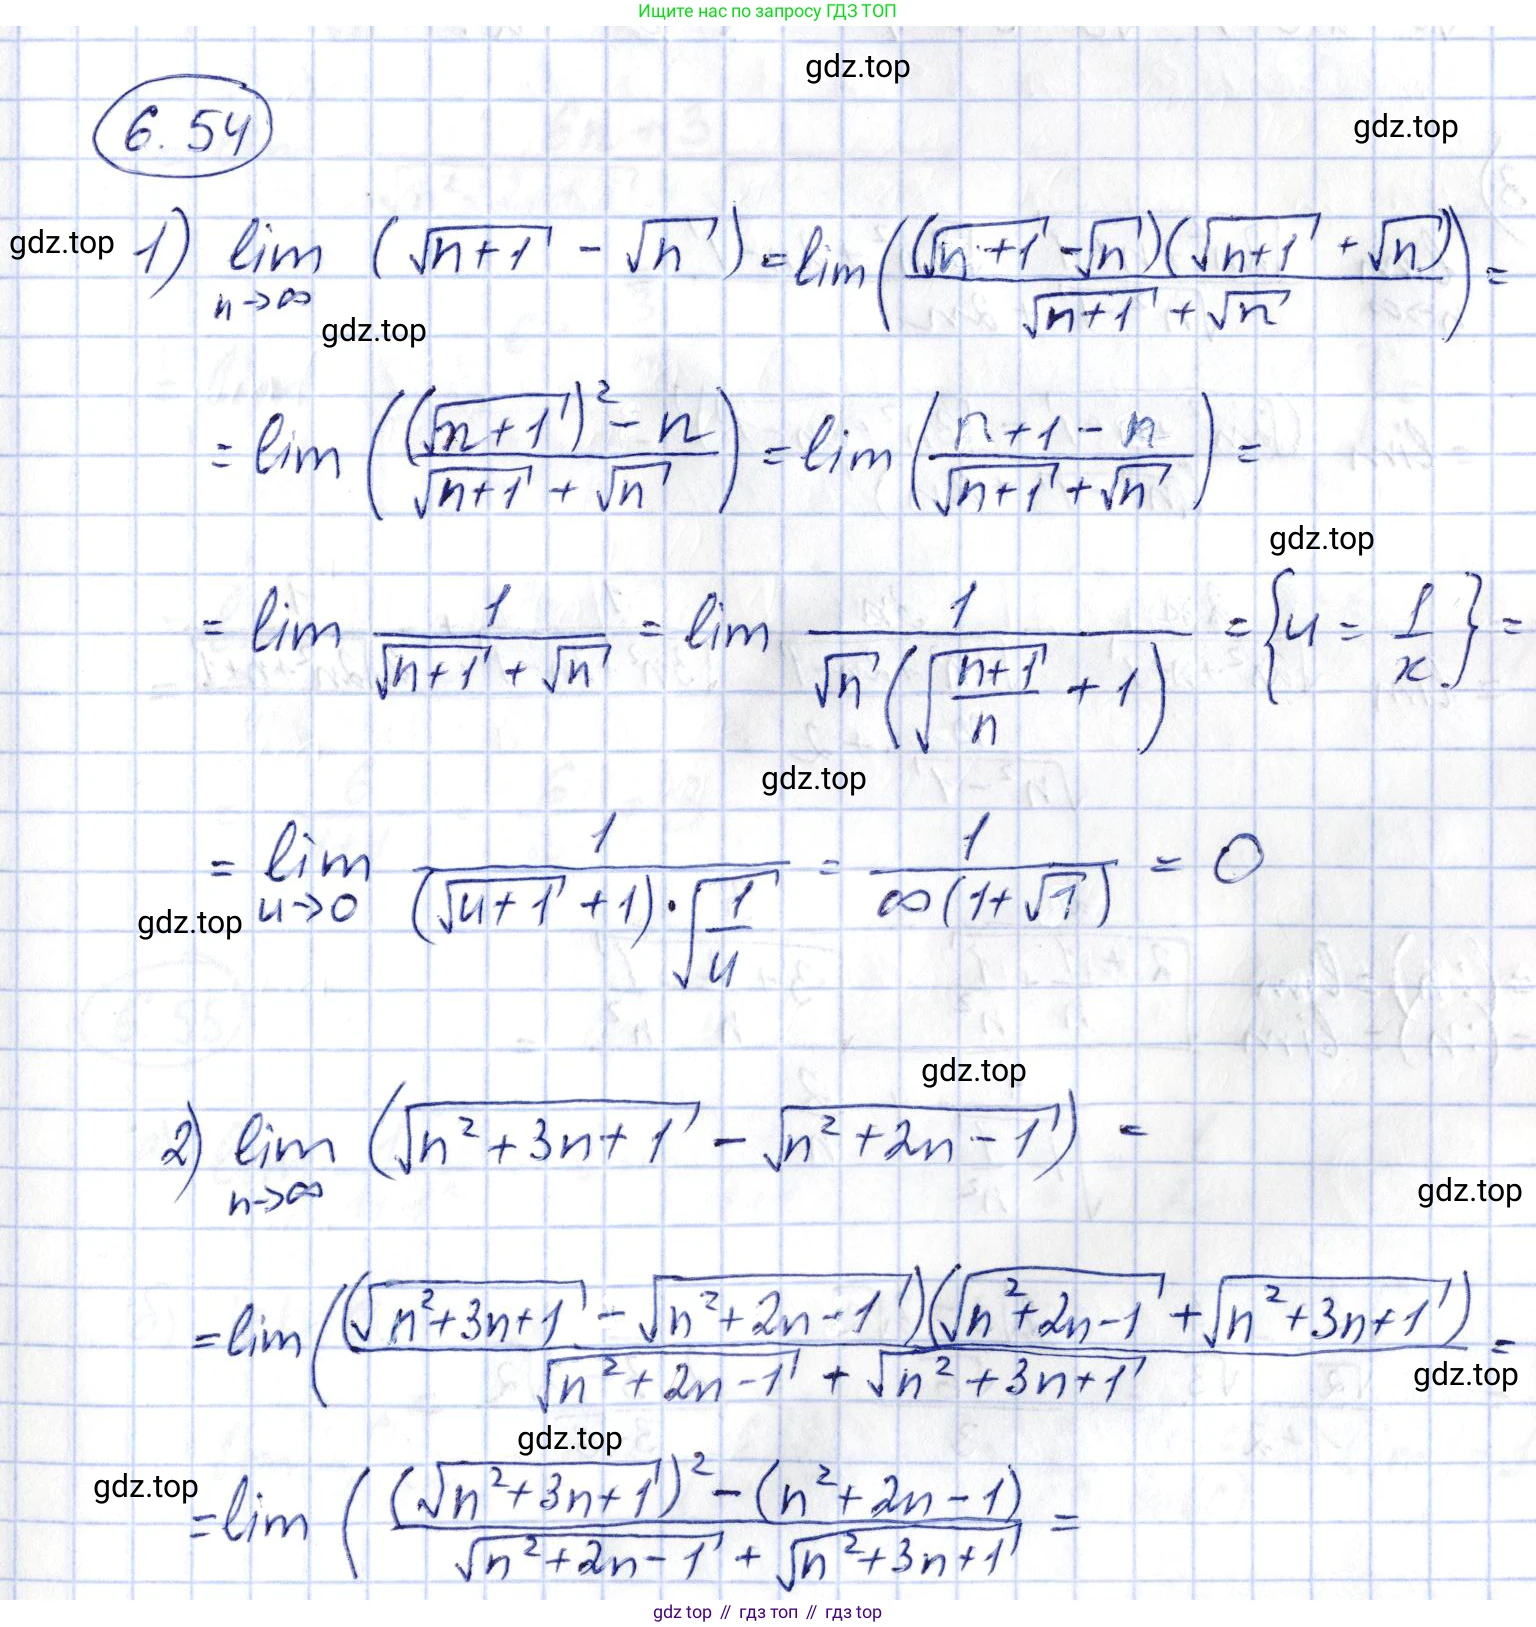 Ищите нас по запросу ГДЗ ТОП
gdz.top
6.54
gdz.top
gdz.top
1) lim n→∞ (√(n+1) - √n) = lim (((√(n+1) - √n)(√(n+1) + √n))/(√(n+1) + √n)) =
gdz.top
= lim (((√(n+1))² - n)/(√(n+1) + √n)) = lim ((n+1-n)/(√(n+1) + √n)) =
gdz.top
= lim 1/(√(n+1) + √n) = lim 1/(√n(√((n+1)/n) + 1)) = {u = 1/x} =
gdz.top
= lim u→0 1/((√(u+1) + 1)·√(1/u)) = 1/(∞(1+√1)) = 0
gdz.top
gdz.top
2) lim n→∞ (√(n²+3n+1) - √(n²+2n-1)) =
gdz.top
= lim (((√(n²+3n+1) - √(n²+2n-1))(√(n²+2n-1) + √(n²+3n+1))/(√(n²+2n-1) + √(n²+3n+1)) =
gdz.top
gdz.top
gdz.top
= lim (((√(n²+3n+1))² - (n²+2n-1))/(√(n²+2n-1) + √(n²+3n+1)) =
gdz top // гдз топ // гдз top